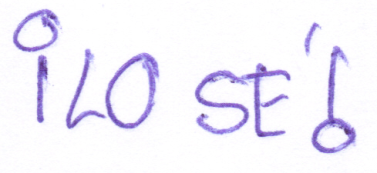 ¡LO SÉ!